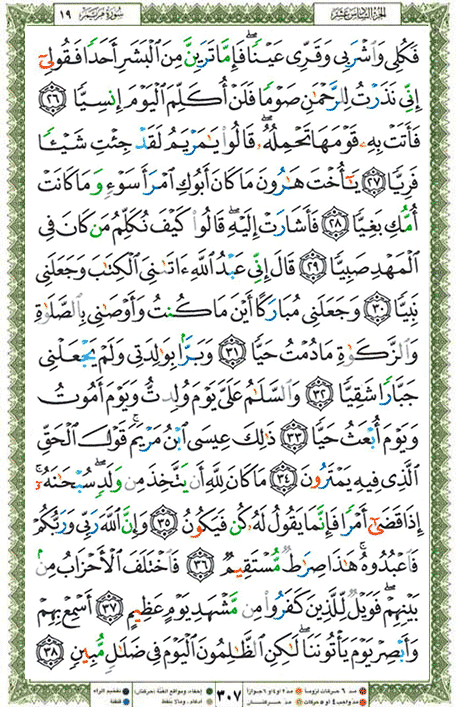 الجزء السادس عشر
سورة مريم ١٩
فَكُلِى وَٱشْرَبِى وَقَرِّى عَيْنًۭا ۖ فَإِمَّا تَرَيِنَّ مِنَ ٱلْبَشَرِ أَحَدًۭا فَقُولِىٓ
إِنِّى نَذَرْتُ لِلرَّحْمَٰنِ صَوْمًۭا فَلَنْ أُكَلِّمَ ٱلْيَوْمَ إِنسِيًّۭا ٢٦
فَأَتَتْ بِهِۦ قَوْمَهَا تَحْمِلُهُۥ ۖ قَالُوا۟ يَٰمَرْيَمُ لَقَدْ جِئْتِ شَيْـًۭٔا
فَرِيًّۭا ٢٧ يَٰٓأُخْتَ هَٰرُونَ مَا كَانَ أَبُوكِ ٱمْرَأَ سَوْءٍۢ وَمَا كَانَتْ
أُمُّكِ بَغِيًّۭا ٢٨ فَأَشَارَتْ إِلَيْهِ ۖ قَالُوا۟ كَيْفَ نُكَلِّمُ مَن كَانَ فِى
ٱلْمَهْدِ صَبِيًّۭا ٢٩ قَالَ إِنِّى عَبْدُ ٱللَّهِ ءَاتَىٰنِىَ ٱلْكِتَٰبَ وَجَعَلَنِى
نَبِيًّۭا ٣٠ وَجَعَلَنِى مُبَارَكًا أَيْنَ مَا كُنتُ وَأَوْصَٰنِى بِٱلصَّلَوٰةِ
وَٱلزَّكَوٰةِ مَا دُمْتُ حَيًّۭا ٣١ وَبَرًّۢا بِوَٰلِدَتِى وَلَمْ يَجْعَلْنِى
جَبَّارًۭا شَقِيًّۭا ٣٢ وَٱلسَّلَٰمُ عَلَىَّ يَوْمَ وُلِدتُّ وَيَوْمَ أَمُوتُ
وَيَوْمَ أُبْعَثُ حَيًّۭا ٣٣ ذَٰلِكَ عِيسَى ٱبْنُ مَرْيَمَ ۚ قَوْلَ ٱلْحَقِّ
ٱلَّذِى فِيهِ يَمْتَرُونَ ٣٤ مَا كَانَ لِلَّهِ أَن يَتَّخِذَ مِن وَلَدٍۢ ۖ سُبْحَٰنَهُۥٓ ۚ
إِذَا قَضَىٰٓ أَمْرًۭا فَإِنَّمَا يَقُولُ لَهُۥ كُن فَيَكُونُ ٣٥ وَإِنَّ ٱللَّهَ رَبِّى وَرَبُّكُمْ
فَٱعْبُدُوهُ ۚ هَٰذَا صِرَٰطٌۭ مُّسْتَقِيمٌۭ ٣٦ فَٱخْتَلَفَ ٱلْأَحْزَابُ مِنۢ
بَيْنِهِمْ ۖ فَوَيْلٌۭ لِّلَّذِينَ كَفَرُوا۟ مِن مَّشْهَدِ يَوْمٍ عَظِيمٍ ٣٧ أَسْمِعْ بِهِمْ
وَأَبْصِرْ يَوْمَ يَأْتُونَنَا ۖ لَٰكِنِ ٱلظَّٰلِمُونَ ٱلْيَوْمَ فِى ضَلَٰلٍۢ مُّبِينٍۢ ٣٨
مد ٦ حركات لزوماً
مد ٢ او ٤ او ٦ جوازاً
إخفاء، ومواقع الغنة (حركتان)
تفخيم الراء
مد واجب ٤ او ٥ حركات
مد حركتان
ادغام، وما لا يلفظ
قلقلة
٣٠٧